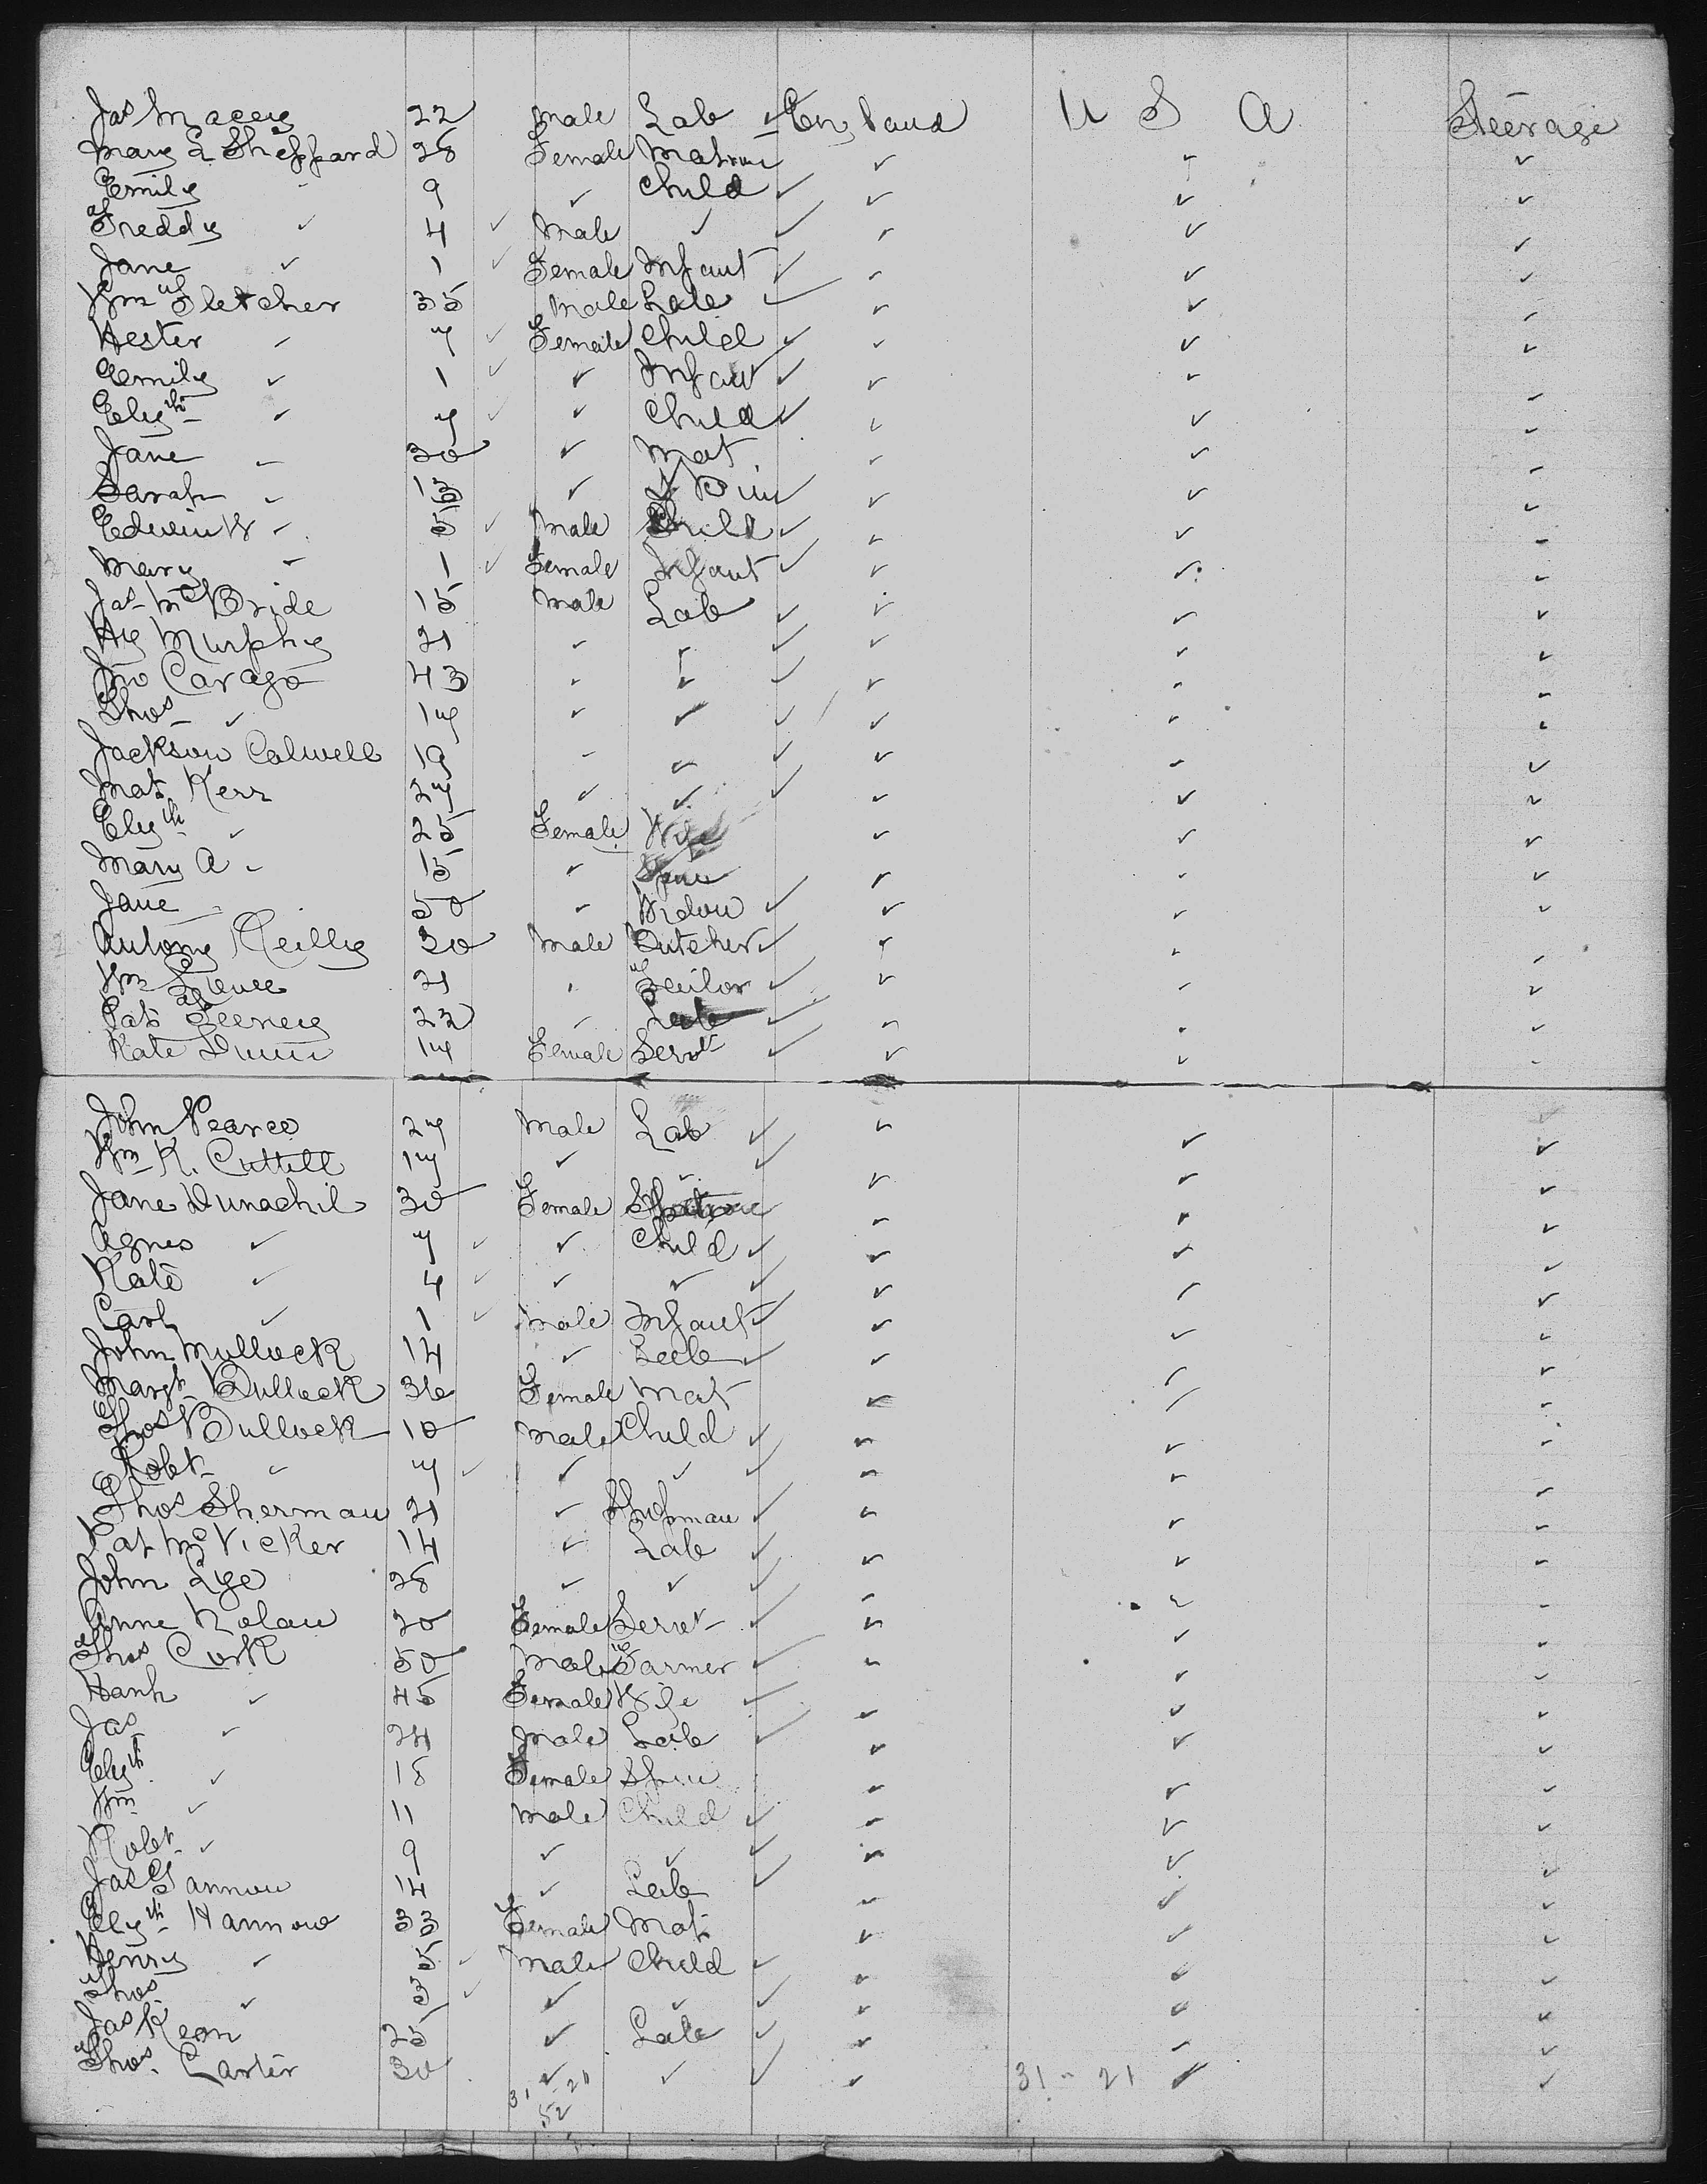 Jas Macey 22 Male Lab ✓ England U S A Steerage
Mary A Sheppard 28 Female Matron ✓ ✓ ✓
Emily " 9 ✓ Child ✓ ✓ ✓ ✓
Freddy ✓ 4 ✓ Male ✓ ✓ ✓ ✓ ✓
Jane ✓ 1 ✓ Female Infant ✓ ✓ ✓ ✓
Wm Fletcher 35 Male Lab ✓ ✓ ✓ ✓
Hester ✓ 7 ✓ Female Child ✓ ✓ ✓ ✓
Emily ✓ 1 ✓ ✓ Infant ✓ ✓ ✓ ✓
Elizth ✓ 7 ✓ ✓ Child ✓ ✓ ✓ ✓
Jane ✓ 30 ✓ Mat ✓ ✓ ✓
Sarah ✓ 13 ✓ Spin ✓ ✓ ✓ ✓
Edwin W ✓ 5 ✓ Male Child ✓ ✓ ✓ ✓
Mary ✓ 1 ✓ Female Infant ✓ ✓ ✓ ✓
Jas McBride 15 Male Lab ✓ ✓ ✓ ✓
Hy Murphy 21 ✓ ✓ ✓ ✓ ✓ ✓
Jno Carago 43 ✓ ✓ ✓ ✓ ✓ ✓
Thos ✓ 17 ✓ ✓ ✓ ✓ ✓ ✓
Jackson Calwell 19 ✓ ✓ ✓ ✓ ✓ ✓
Mat Kerr 27 ✓ ✓ ✓ ✓ ✓ ✓
Elizth ✓ 25 Female Wife ✓ ✓ ✓
Mary A ✓ 15 ✓ Spin ✓ ✓ ✓
Jane ✓ 50 ✓ Widow ✓ ✓ ✓ ✓
Antony Reilly 30 Male Butcher ✓ ✓ ✓ ✓
Wm 21 ✓ Tailor ✓ ✓ ✓ ✓
Pat Feeney 22 ✓ Lab ✓ ✓ ✓ ✓
Kate Dunn 17 Female Servt ✓ ✓ ✓ ✓
John Pearce 27 Male Lab ✓ ✓ ✓ ✓
Wm K. Cuttell 17 ✓ ✓ ✓ ✓ ✓ ✓
Jane Dunachil 30 Female ✓ ✓ ✓
Agnes ✓ 7 ✓ ✓ Child ✓ ✓ ✓ ✓
Kate ✓ 4 ✓ ✓ ✓ ✓ ✓ ✓ ✓
Carl ✓ 1 ✓ Male Infant ✓ ✓ ✓ ✓
John Mullock 14 ✓ Lab ✓ ✓ ✓ ✓
Margt Bullock 36 Female Mat ✓ ✓ ✓
Thos Bullock 10 Male Child ✓ ✓ ✓ ✓
Robt ✓ 7 ✓ ✓ ✓ ✓ ✓ ✓ ✓
Thos Sherman 21 ✓ Shopman ✓ ✓ ✓ ✓
Pat McVicker 14 ✓ Lab ✓ ✓ ✓ ✓
John Lye 28 ✓ ✓ ✓ ✓ ✓ ✓
Anne Nolan 20 Female Servt ✓ ✓ ✓ ✓
Thos Cork 50 Male Farmer ✓ ✓ ✓ ✓
Hanh ✓ 45 Female Wife ✓ ✓ ✓ ✓
Jas ✓ 24 Male Lab ✓ ✓ ✓ ✓
Elizth ✓ 18 Female Spin ✓ ✓ ✓
Wm ✓ 11 Male Child ✓ ✓ ✓ ✓
Robt ✓ 9 ✓ ✓ ✓ ✓ ✓ ✓
Jas Gannon 14 ✓ Lab ✓ ✓ ✓ ✓
Elizth Hannow 33 Female Mat ✓ ✓ ✓
Henry ✓ 5 ✓ Male Child ✓ ✓ ✓ ✓
Thos ✓ 3 ✓ ✓ ✓ ✓ ✓ ✓ ✓
Jas Keon 25 ✓ Lab ✓ ✓ ✓ ✓
Thos. Carter 30 ✓ ✓ ✓ ✓ 31 - 21 ✓ ✓
31 - 21
52